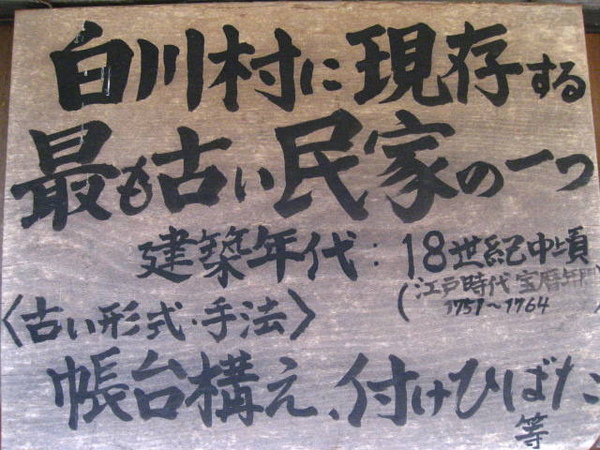 白川村に現存する
最も古い民家の一つ
建築年代：18世紀中頃
(江戸時代 宝暦年間
1751～1764)
〈古い形式・手法〉
帳台構え、付けひばた
等